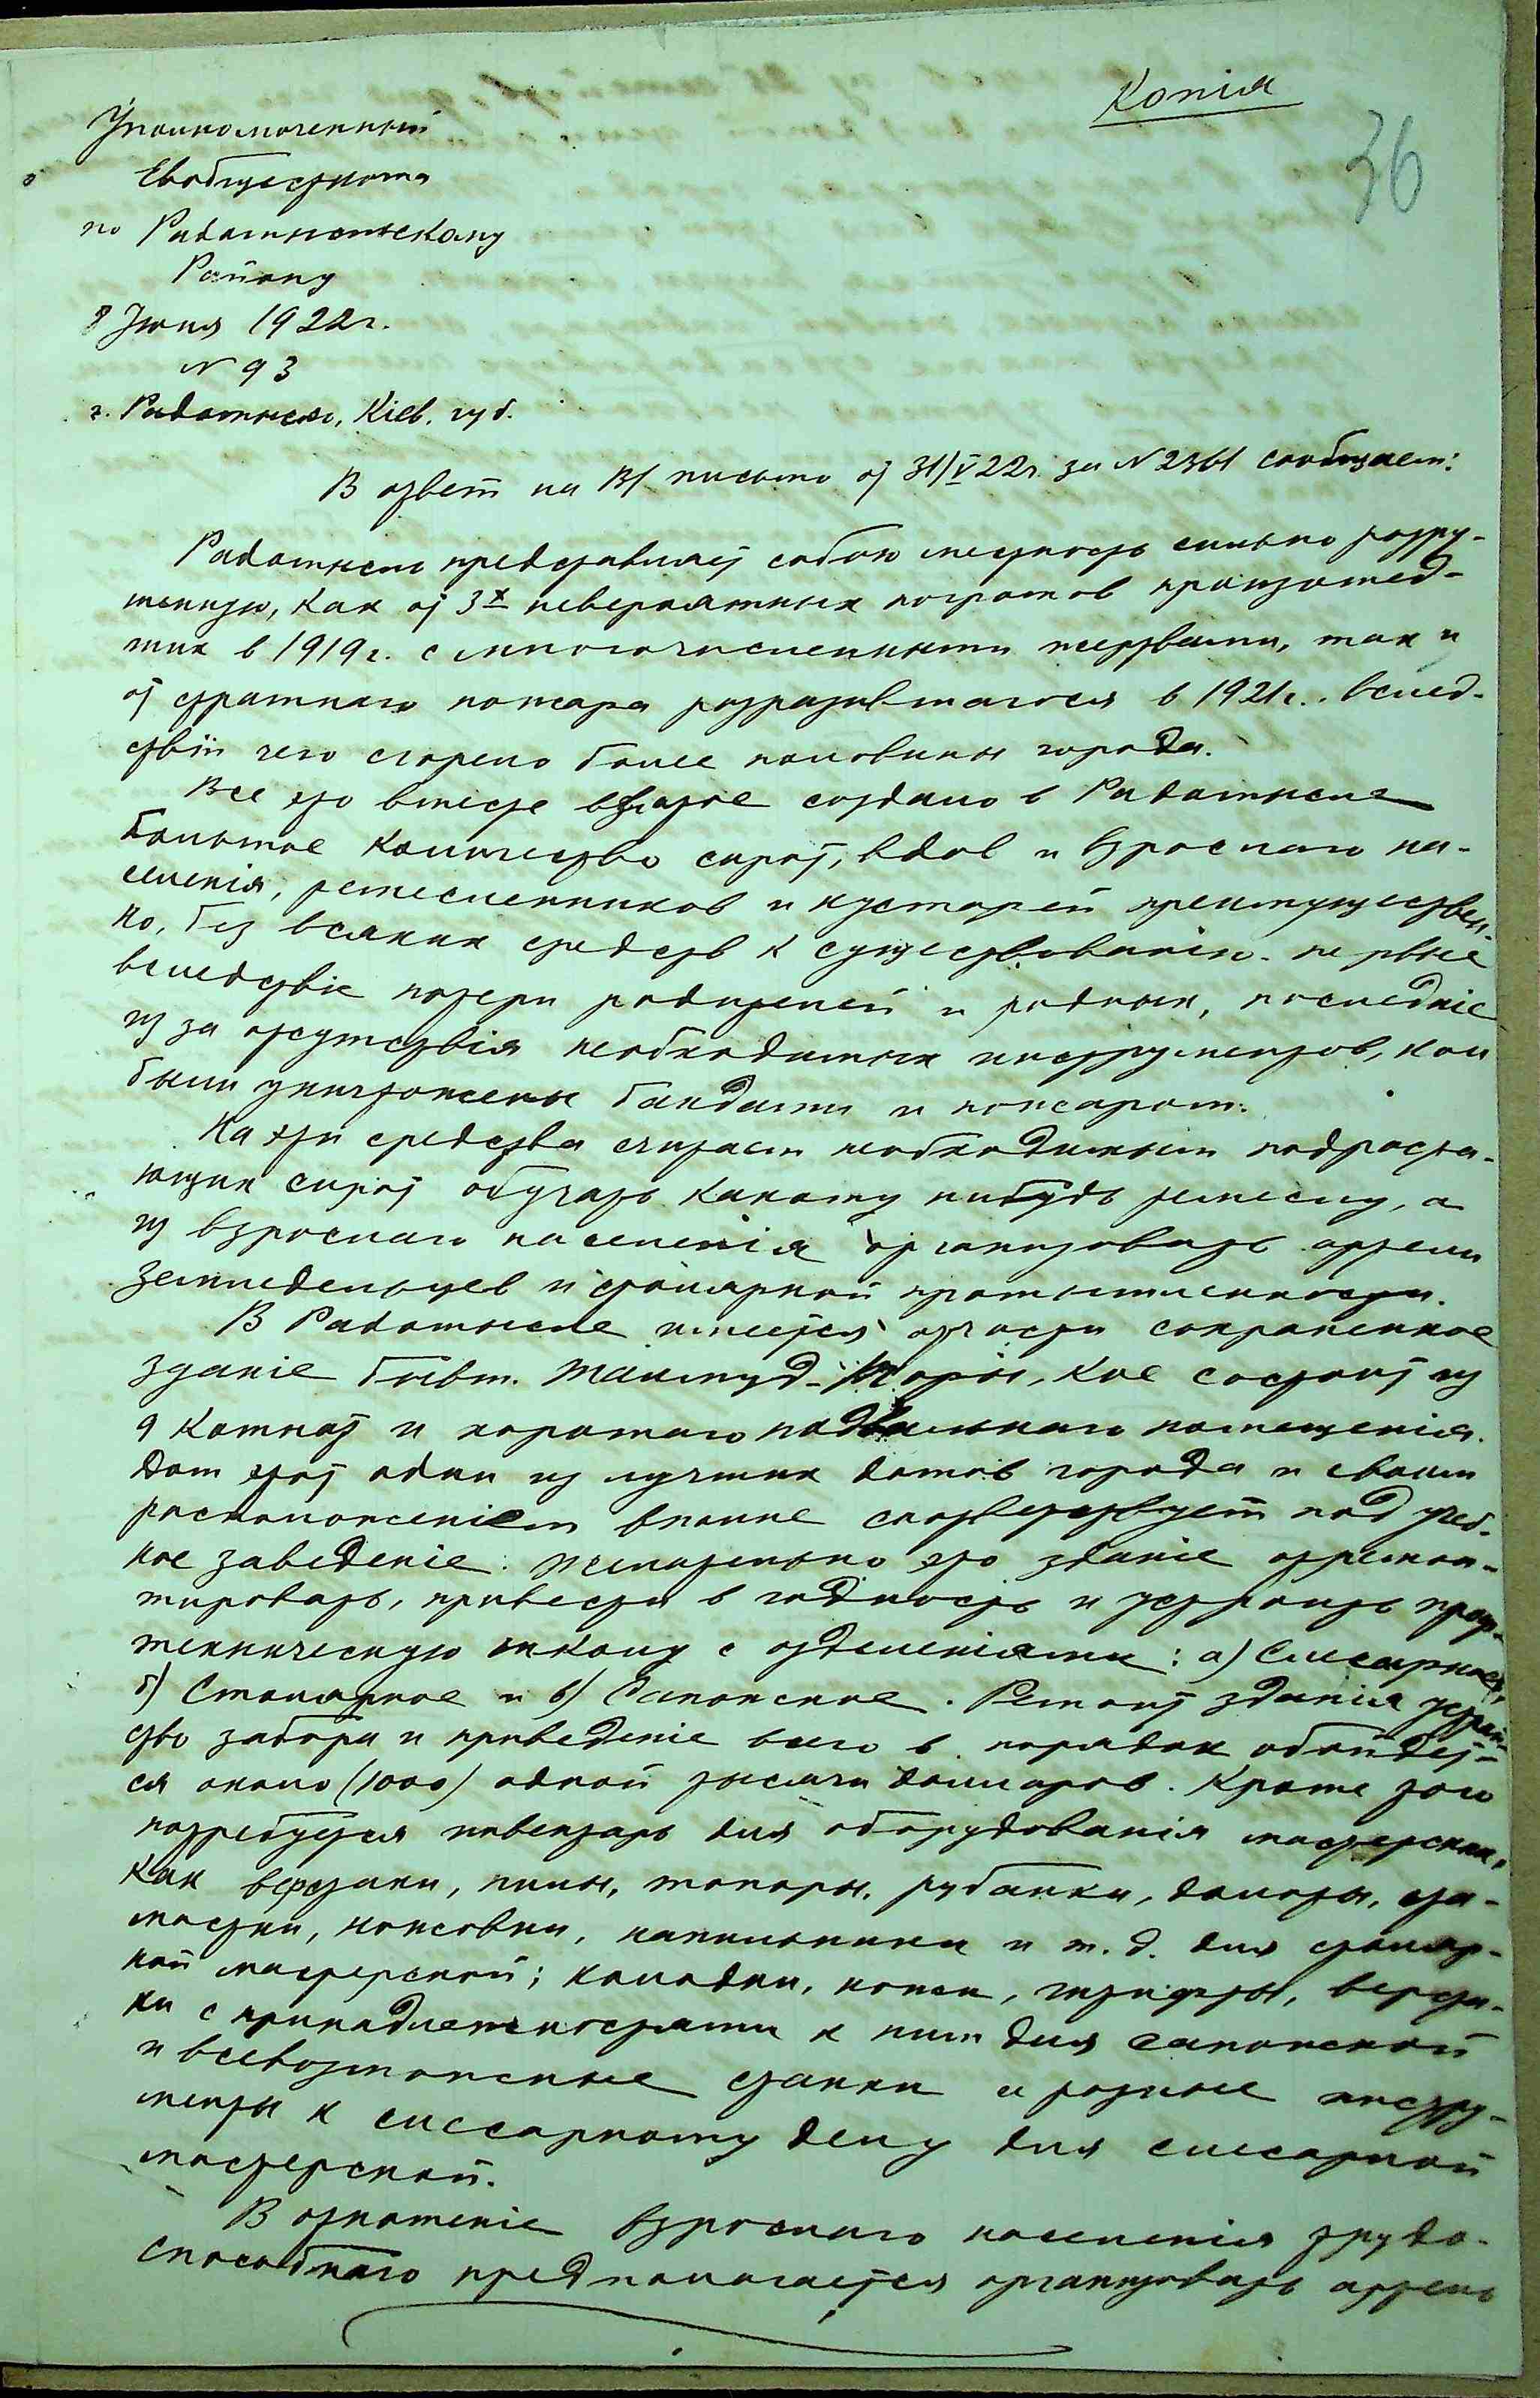 Копія
36
Уполномоченный
Евобщесткома
по Радомысльскому
Району
8 Июня 1922г.
N 93
г. Радомысль, Кіев. губ.
В ответ на В/ письмо от 31/V 22г. за N 2361 сообщаем:
Радомысль представляет собою местность сильно разру-
шенную, как от 3х невероятных погромов происшед-
ших в 1919г. с многочисленными жертвами, так и
от страшнаго пожара разразившагося в 1921г.. вслед-
ствіи чего сгорело более половины города.
Все это вместе взятое создало в Радомысле
большое количество сирот, вдов и взрослаго на-
селенія, ремесленников и кустарей преимуществен-
но, без всяких средств к существованію. первые
вследствіе потери родителей и родных, последніе
из за отсутствія необходимых инструментов, кои
были уничтожены бандами и пожаром.
На эти средства считаем необходимым подроста-
ющих сирот обучать какому нибудь ремеслу, а
из взрослаго населенія организовать артели
земледельцев и столярной промышленности.
В Радомысле имеется отчасти сохраненное
зданіе бывш. Талмуд-Торы, кое состоит из
9 комнат и хорошаго подвальнаго помещенія.
Дом этот один из лучших домов города и своим
расположеніем вполне соответствует под учеб-
ное заведеніе. Желательно это зданіе отремон-
тировать, привести в годность и устроить проф-
техническую школу с отделеніями: а) Слесарное,
б) Столярное и в) Сапожное. Ремонт зданія устрой-
ство забора и приведеніе всего в порядок обойдет-
ся около (1000) одной тысячи долларов. Кроме того
потребуется инвентарь для оборудованія мастерских,
как верстаки, пилы, топоры, рубанки, долоты, ста-
мостки, ножовки, напильники и т. д. для столяр-
ной мастерской; колодки, ножи, штифты, верста-
ки с принадлежностями к ним для сапожной
и всевозможные станки и разные инстру-
менты к слесарному делу для слесарной
мастерской.
В отношеніе взрослаго населенія трудо-
способнаго предполагается организовать артель